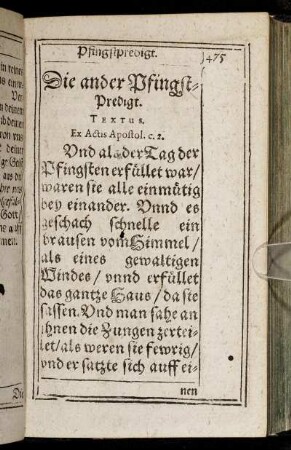 Pfingstpredigt. 475
Die ander Pfingst-
Predigt.
TEXTUS.
Ex Actis Apostol. c. 2.
Vnd als der Tag der
Pfingsten erfüllet war/
waren sie alle einmütig
bey einander. Vnnd es
geschach schnelle ein
brausen vom Himmel/
als eines gewaltigen
Windes/ vnnd erfüllet
das gantze Haus/ da sie
sassen. Vnd man sahe an
ihnen die Zungen zertei-
let/ als weren sie fewrig/
vnd er satzte sich auff ei-
nen